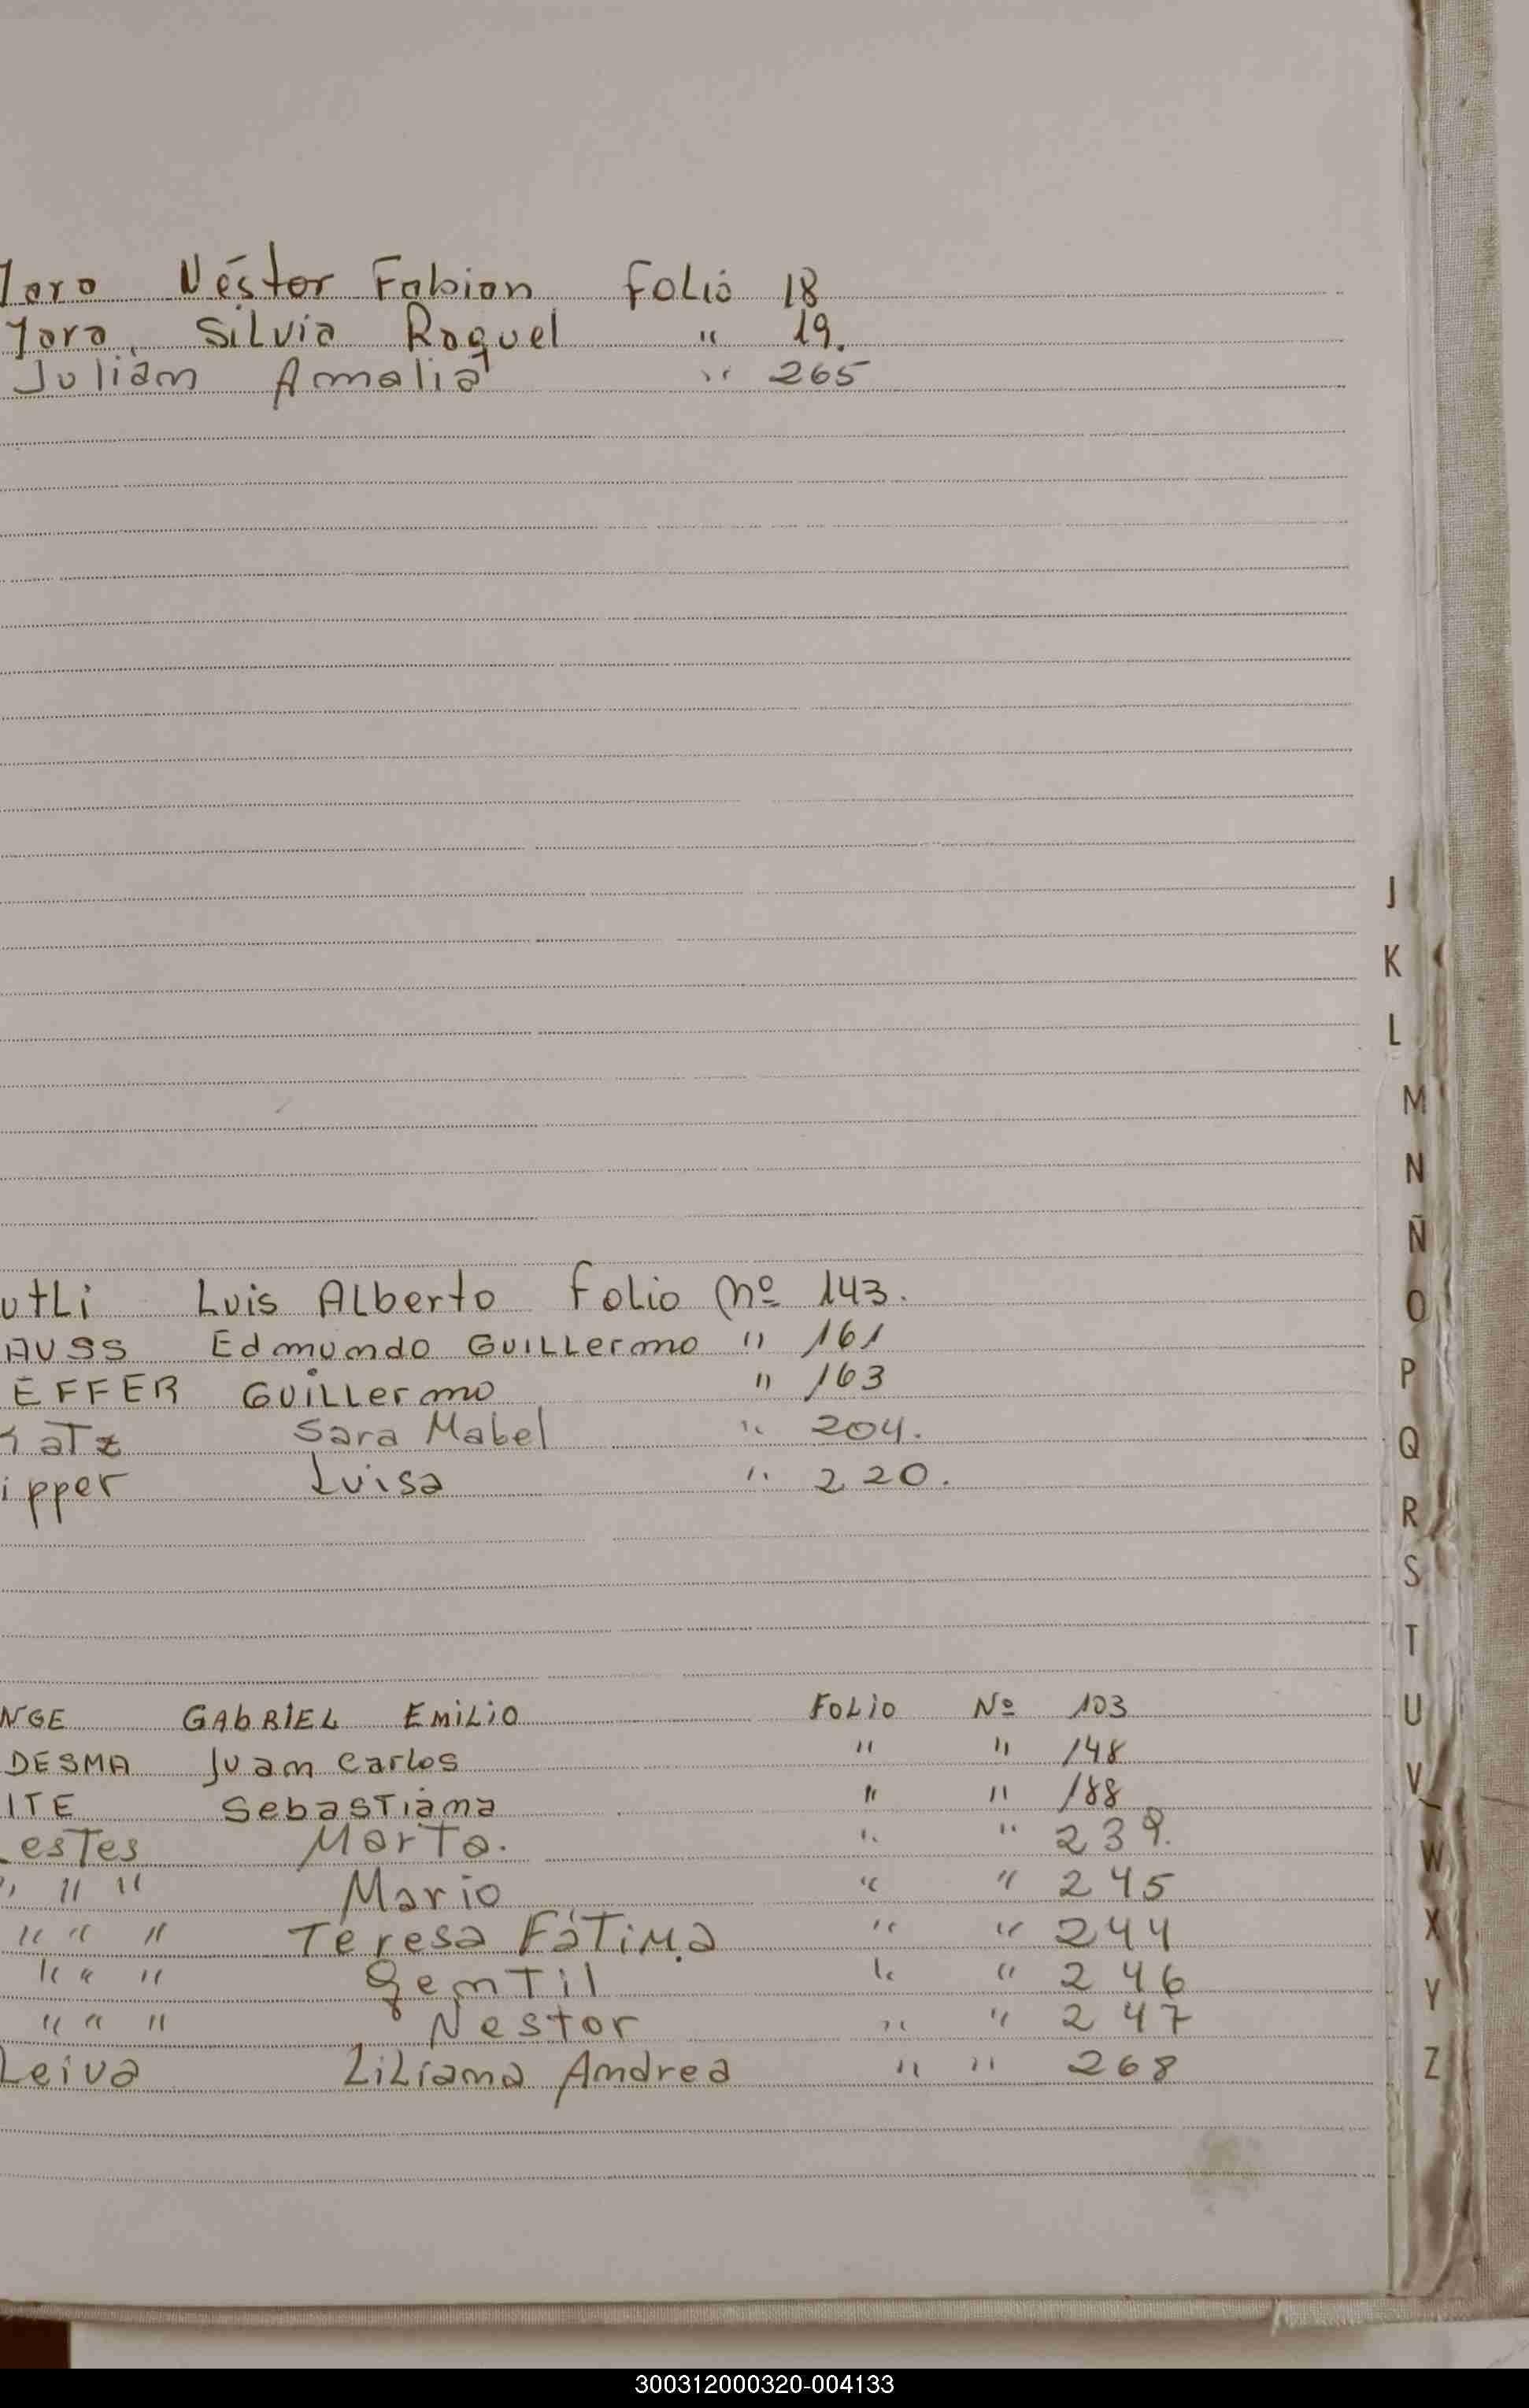 Jara Néstor Fabian Folio 18
Jara, Silvia Raquel " 19.
Julián Amalia " 265
utli Luis Alberto Folio Nº 143.
AUSS Edmundo GUILLermo " 161
EFFER GUILLermo " 163
Katz Sara Mabel " 204.
ipper Luisa " 220.
NGE GAbRIEL EMiLiO FOLiO Nº 103
DESMA Juan Carlos " " 148
ITE SebasTiana " " 188
LesTes MarTa. " " 239.
" " " Mario " " 245
" " " Teresa FáTiMa " " 244
" " " GenTil " " 246
" " " Nestor " " 247
Leiva LiLiana Andrea " " 268
J
K
L
M
N
Ñ
O
P
Q
R
S
T
U
V
W
X
Y
Z
300312000320-004133